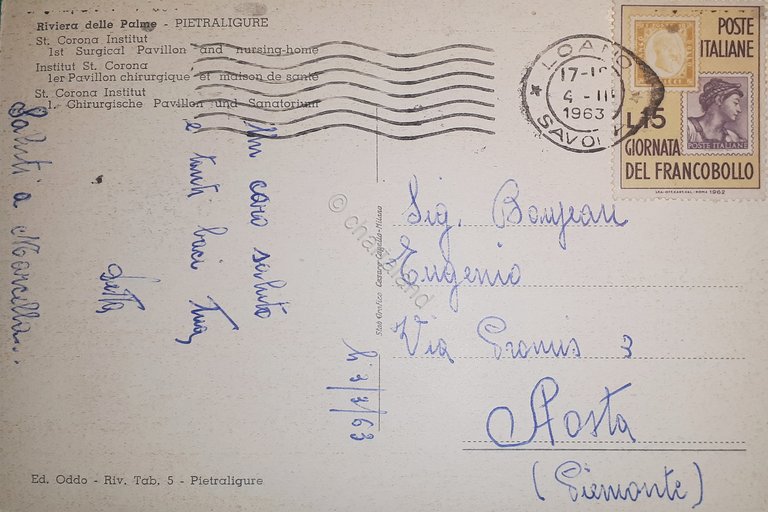 Riviera delle Palme - PIETRALIGURE
St. Corona Institut
1st Surgical Pavillon and nursing-home
Institut St. Corona
1er Pavillon chirurgique et maison de santé
St. Corona Institut
1. Chirurgische Pavillon und Sanatorium
LOANO
17-
4 - III
1963
SAVONA
POSTE
ITALIANE
L.15
POSTE ITALIANE
GIORNATA
DEL FRANCOBOLLO
1962
Un caro saluto
e tanti baci tua
Saluti a Marcella..
li 3/3/63
Sig. Bonjean
Eugenio
Via 3
Aosta
(Piemonte)
© chartaland
Ed. Oddo - Riv. Tab. 5 - Pietraligure